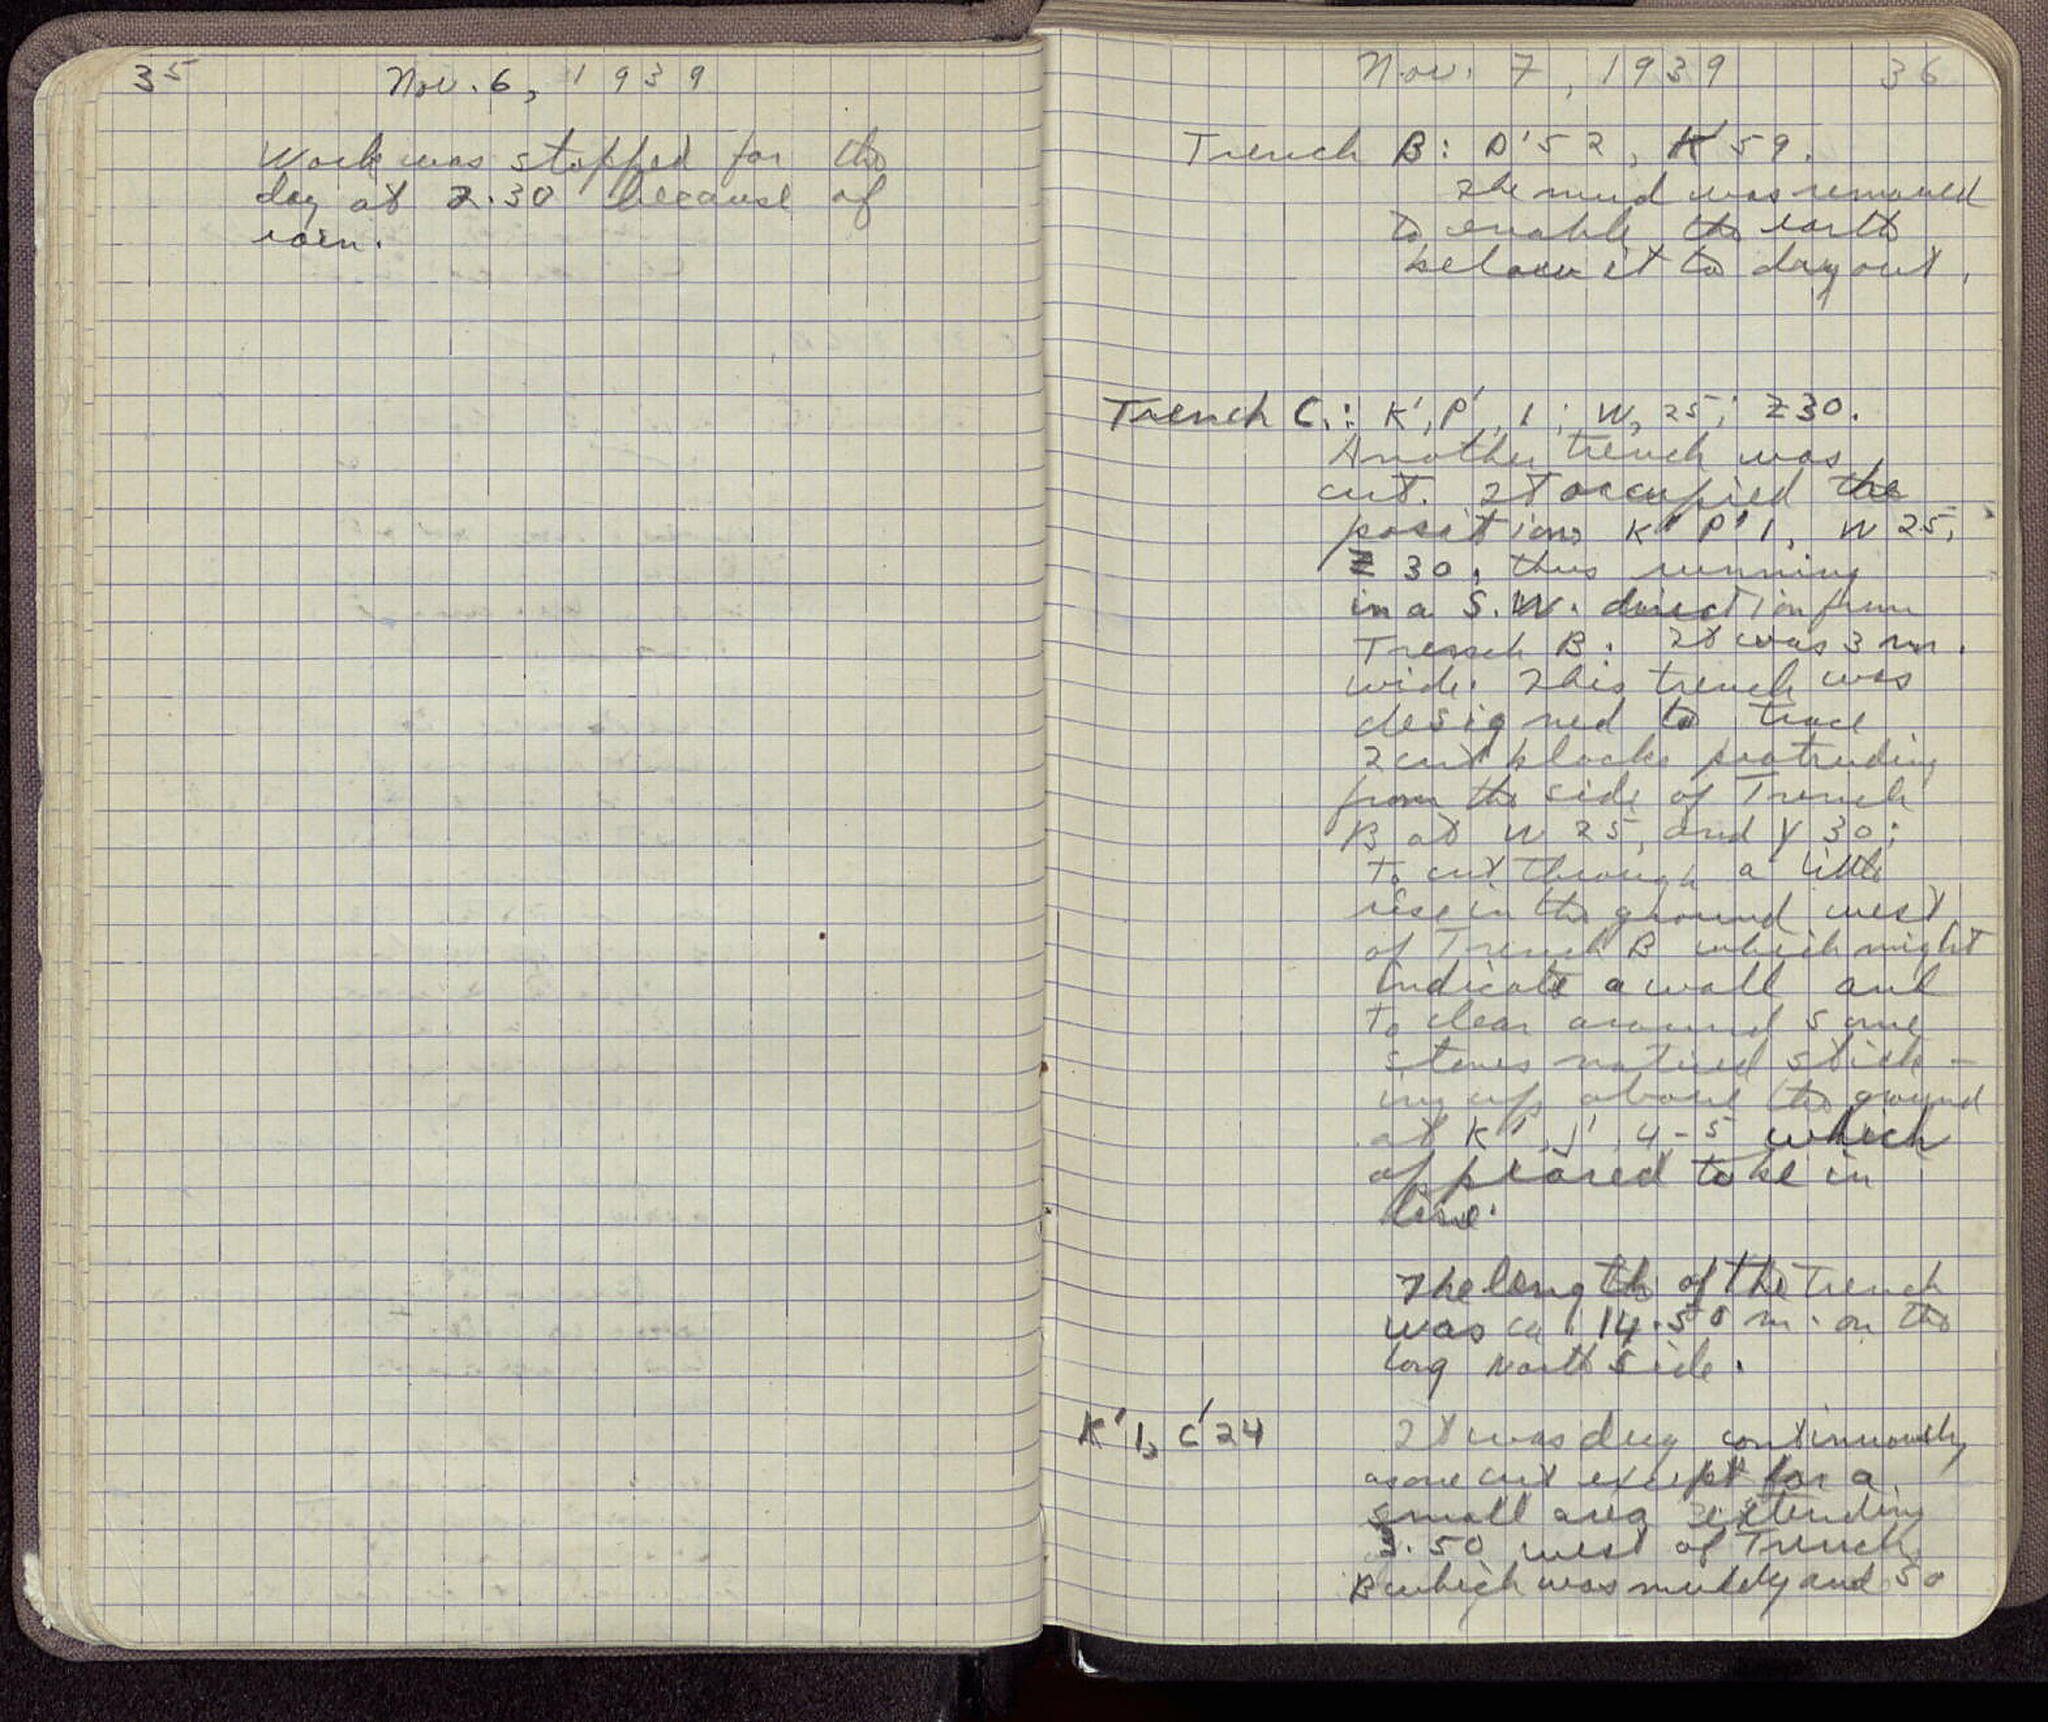 35
Nov. 6, 1939
Work was stopped for the
day at 2.30 because of
rain.
Nov. 7, 1939
36
Trench B: D'52, K 59.
The mud was removed
to enable the earth
below it to dry out.
Trench C.: K', P', 1; W, 25; Z30.
Another trench was
cut. It occupied the
position K' P' 1, W 25,
Z 30, thus running
in a S.W. direction from
Trench B. It was 3 m.
wide. This trench was
designed to trace
2 cut blocks protruding
from the side of Trench
B at W 25, and Y 30;
to cut through a little
rise in the ground west
of Trench B which might
indicate a wall and
to clear around some
stones noticed stick-
ing up above the ground
at K', J', 4-5 which
appeared to be in
line.
The length of the Trench
was ca. 14.50 m. on the
long north side.
K' 1, C'24
It was dug continuously
as one cut except for a
small area extending
3.50 west of Trench
B which was muddy and so